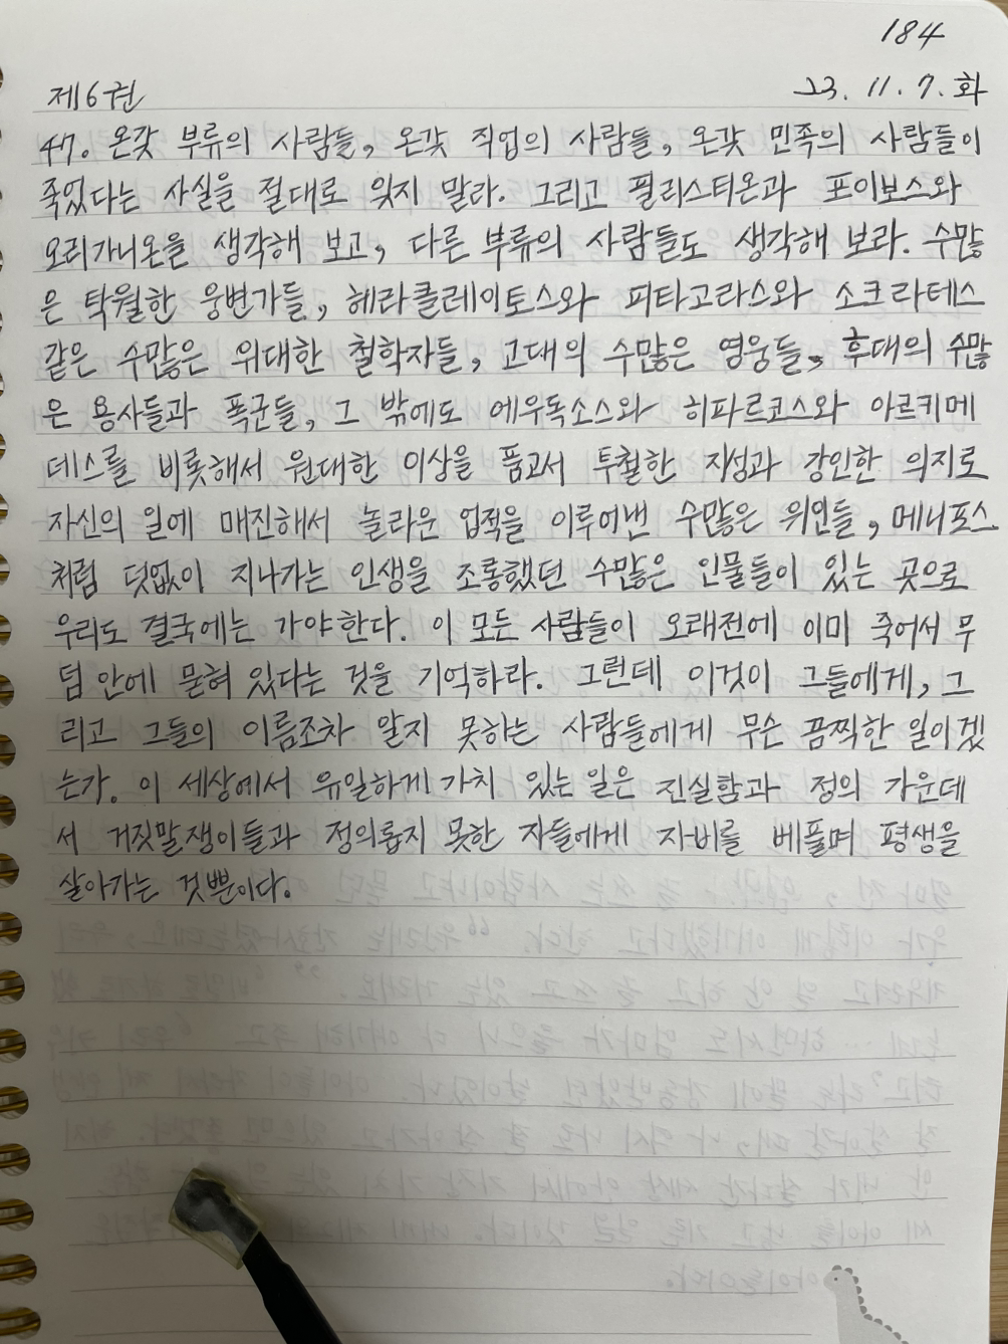 184
제6권 23. 11. 7. 화
47. 온갖 부류의 사람들, 온갖 직업의 사람들, 온갖 민족의 사람들이
죽었다는 사실을 절대로 잊지 말라. 그리고 필리스티온과 포이보스와
오리가니온을 생각해 보고, 다른 부류의 사람들도 생각해 보라. 수많
은 탁월한 웅변가들, 헤라클레이토스와 피타고라스와 소크라테스
같은 수많은 위대한 철학자들, 고대의 수많은 영웅들, 후대의 수많
은 용사들과 폭군들, 그 밖에도 에우독소스와 히파르코스와 아르키메
데스를 비롯해서 원대한 이상을 품고서 투철한 지성과 강인한 의지로
자신의 일에 매진해서 놀라운 업적을 이루어낸 수많은 위인들, 메니포스
처럼 덧없이 지나가는 인생을 조롱했던 수많은 인물들이 있는 곳으로
우리도 결국에는 가야한다. 이 모든 사람들이 오래전에 이미 죽어서 무
덤 안에 묻혀 있다는 것을 기억하라. 그런데 이것이 그들에게, 그
리고 그들의 이름조차 알지 못하는 사람들에게 무슨 끔찍한 일이겠
는가. 이 세상에서 유일하게 가치 있는 일은 진실함과 정의 가운데
서 거짓말쟁이들과 정의롭지 못한 자들에게 자비를 베풀며 평생을
살아가는 것뿐이다.